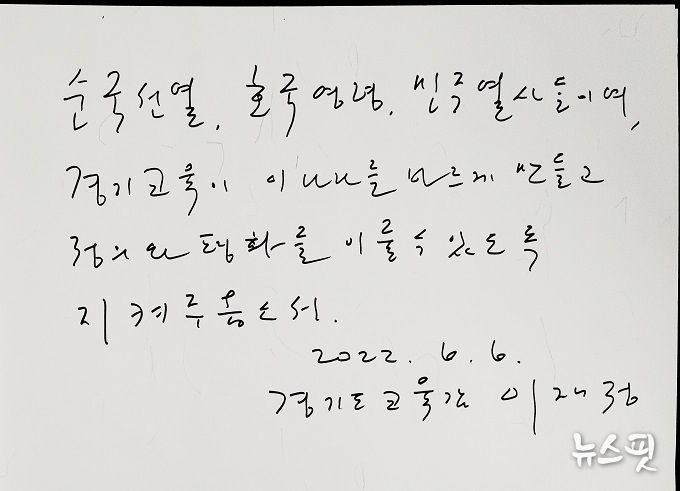 순국선열, 호국영령, 민주열사들이여,
경기교육이 이 나라를 바르게 만들고
정의와 평화를 이룰 수 있도록
지켜주옵소서.
2022. 6. 6.
경기도교육감 이재정
뉴스핏